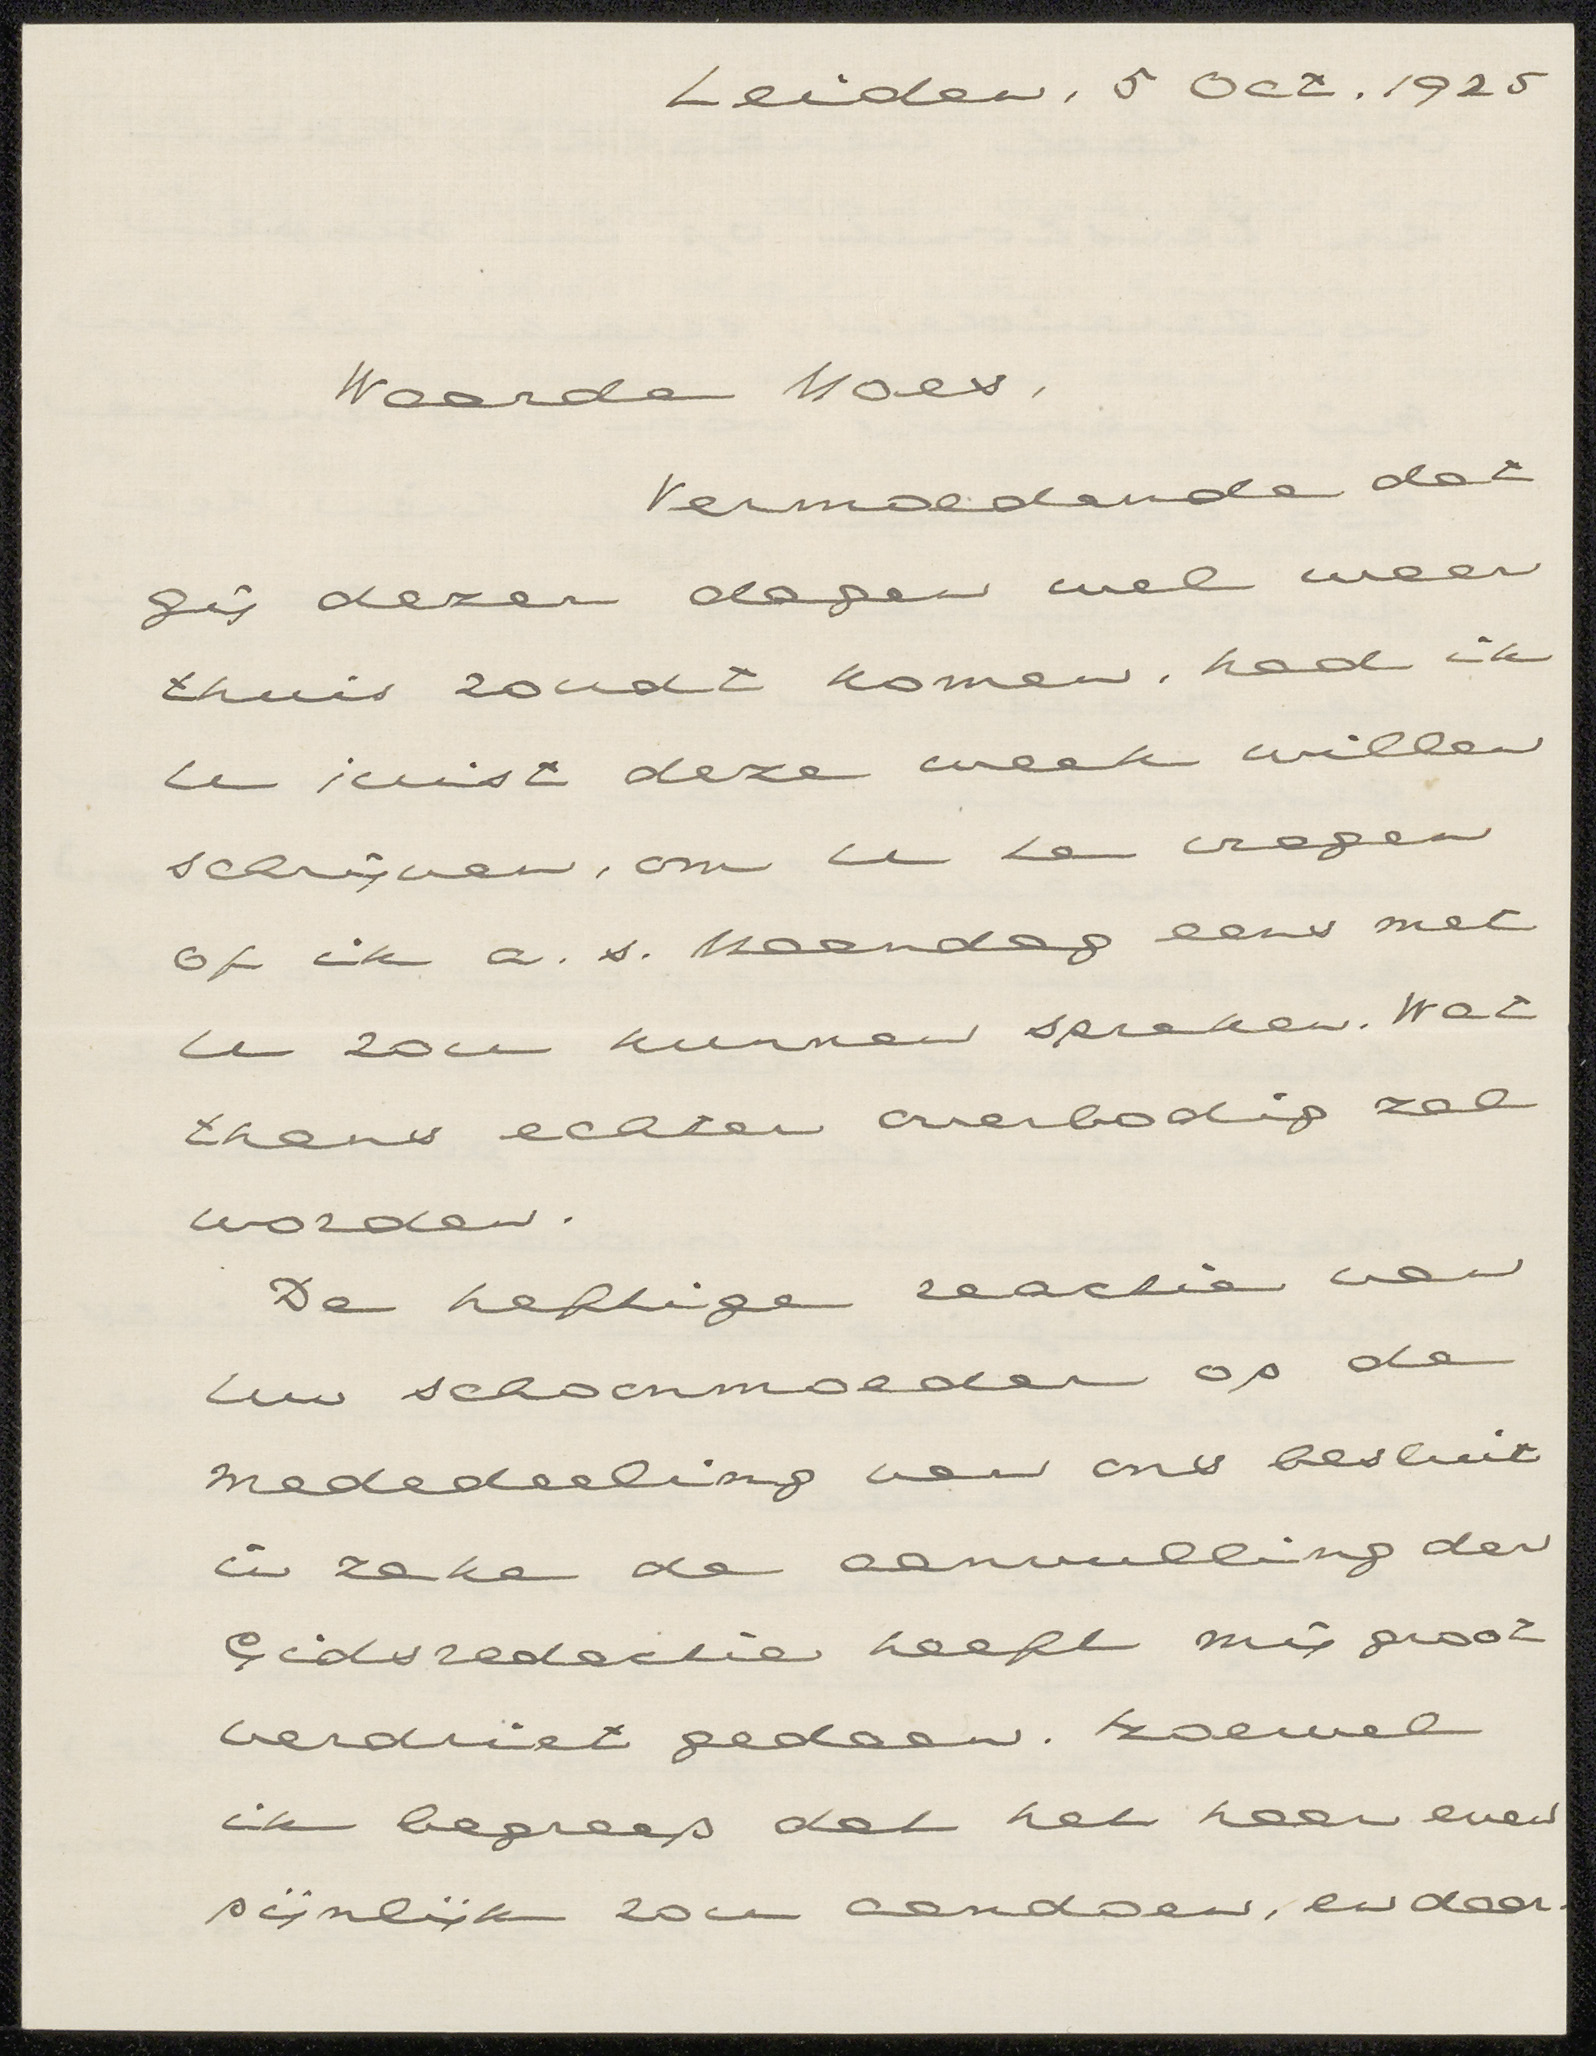 Leiden, 5 Oct. 1925
Waarde Moes,
Vermoedende dat
gij dezer dagen wel weer
thuis zoudt komen, had ik
u juist deze week willen
schrijven, om u te vragen
of ik a. s. Maandag eens met
u zou kunnen spreken. Wat
thans echter overbodig zal
worden.
De heftige reactie van
uw schoonmoeder op de
mededeeling van ons besluit
in zake de aanvulling der
Gidsredactie heeft mij groot
verdriet gedaan. Hoewel
ik begreep dat het haar even
pijnlijk zou aandoen, en daar-